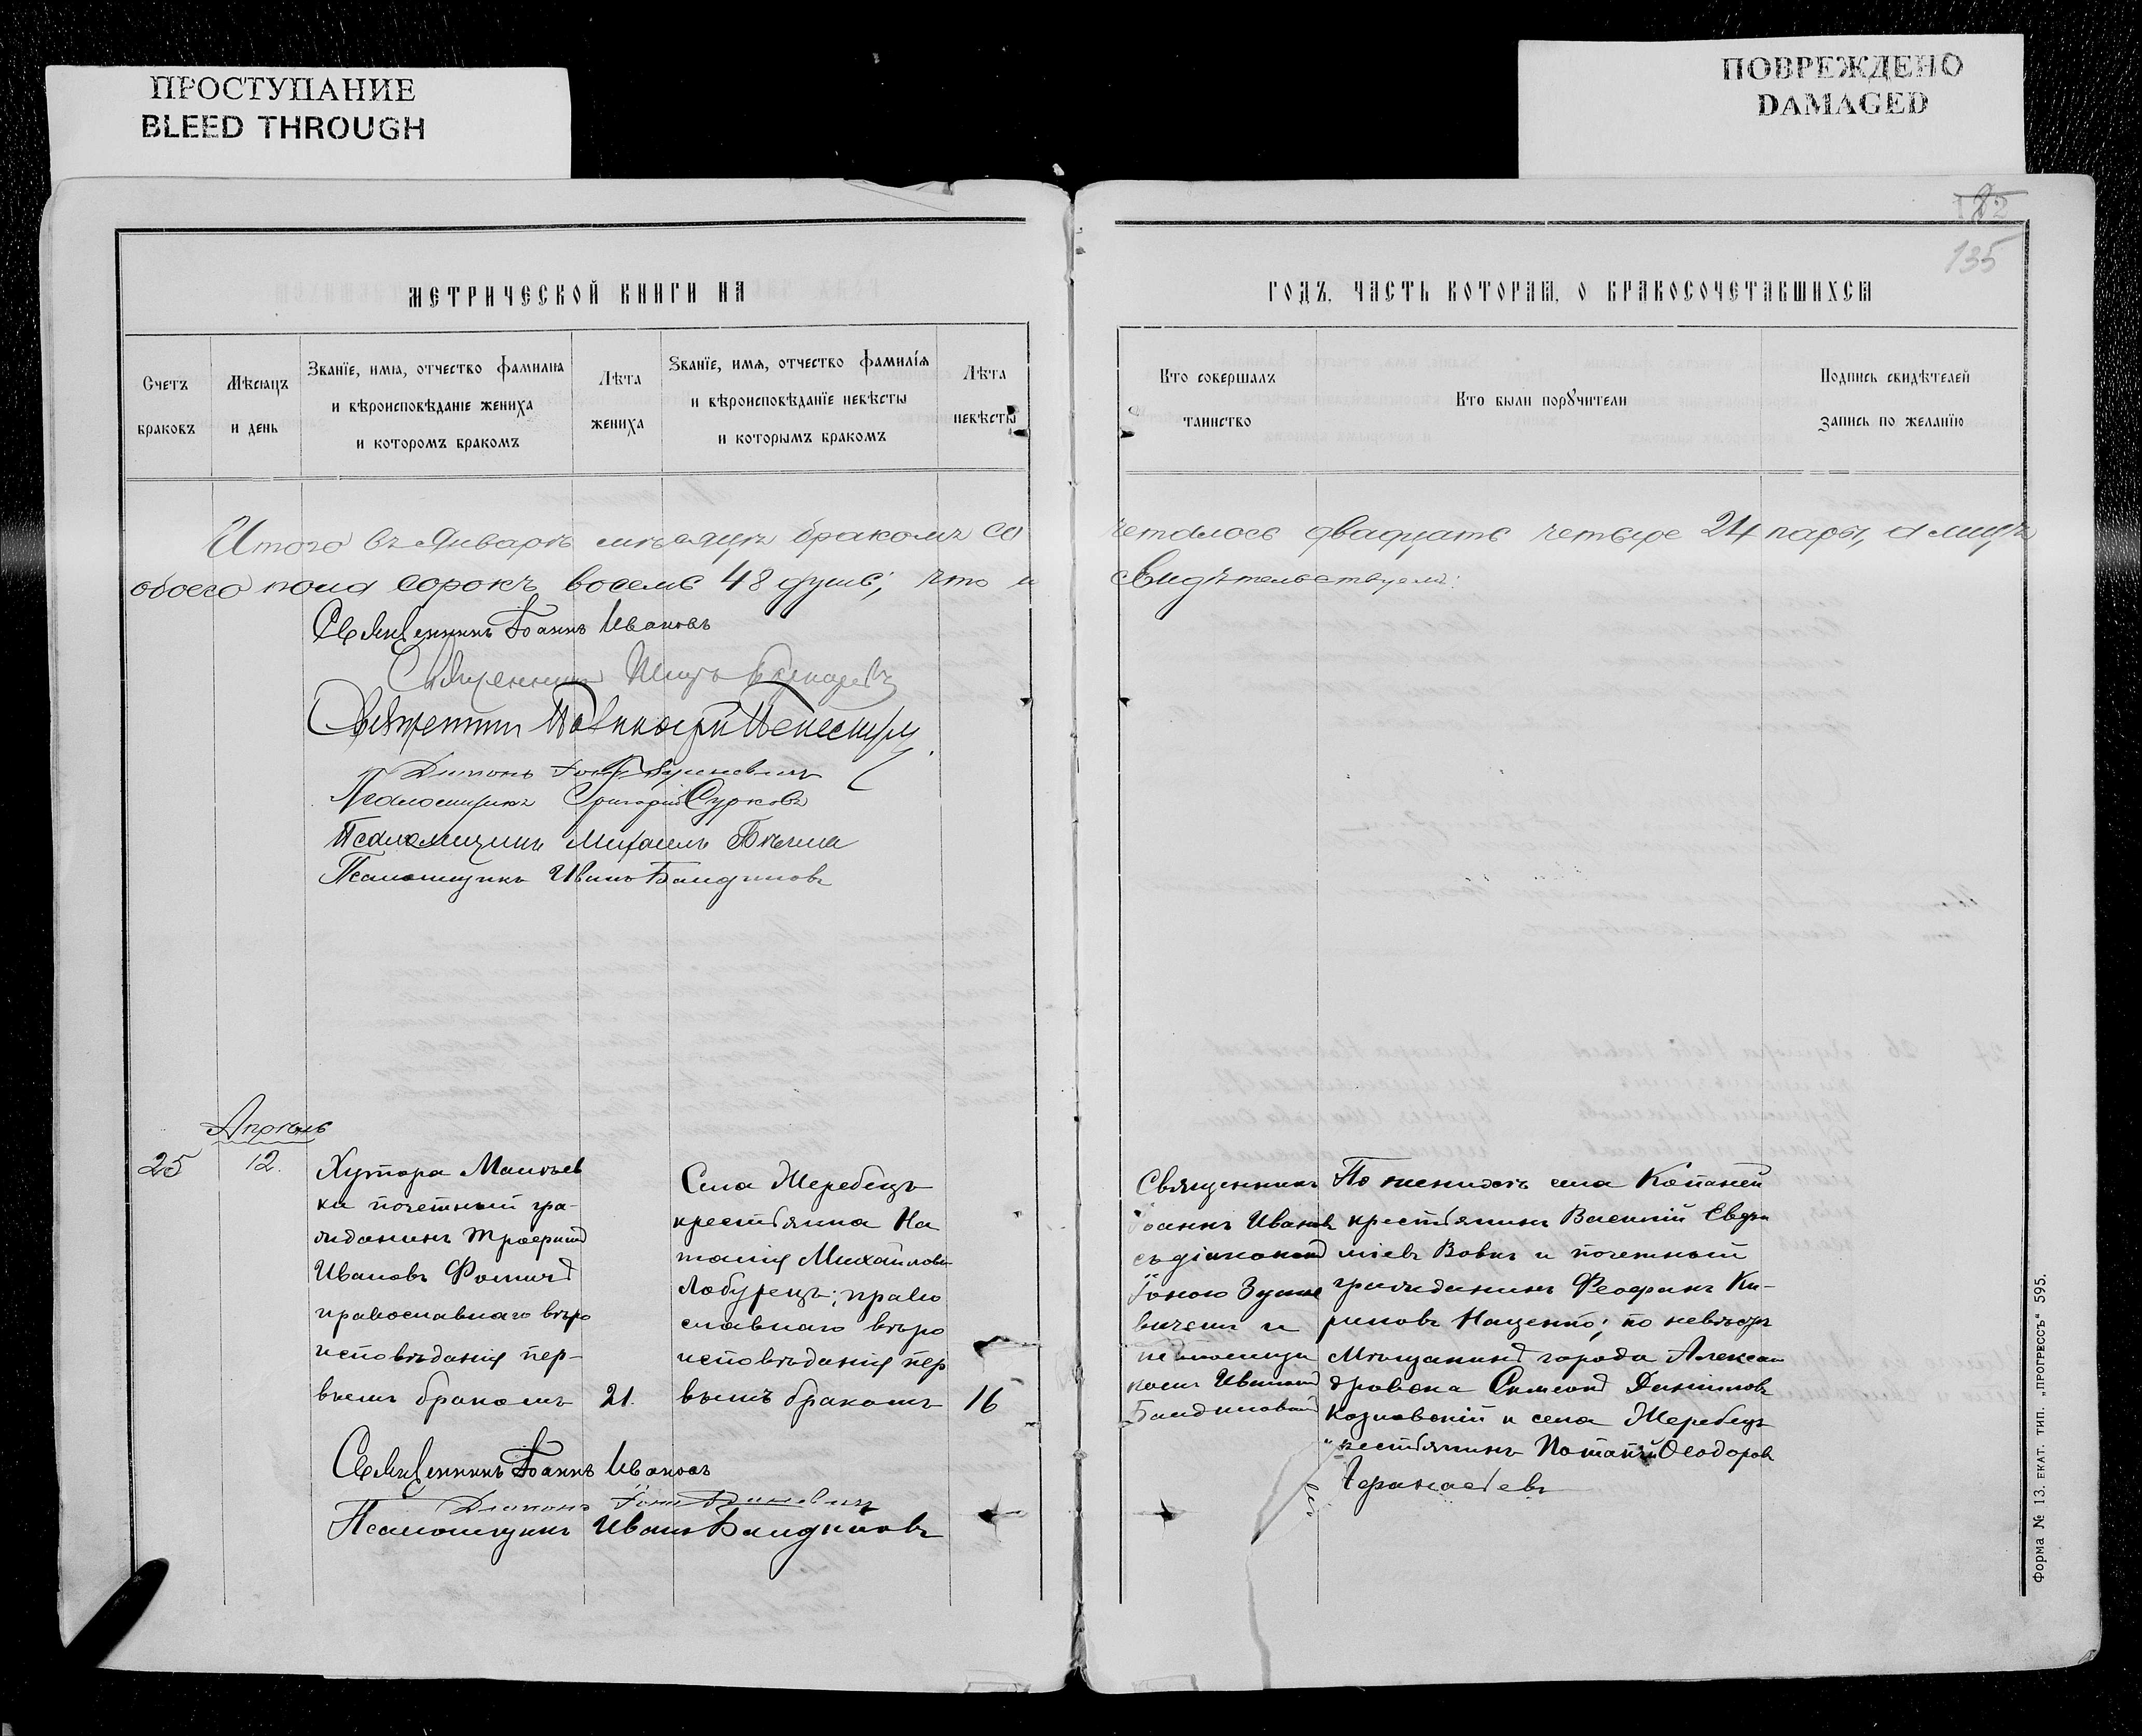 ПРОСТУПАНИЕ
BLEED THROUGH
ПОВРЕЖДЕНО
DAMAGED
135
МЕТРИЧЕСКОЙ КНИГИ НА
ГОДЪ, ЧАСТЬ КОТОРАЯ, О БРАКОСОЧЕТАВШИХСЯ
Счетъ браковъ
Мѣсяцъ и день
Званїе, имя, отчество фамилия
и вѣроисповѣданіе жениха
и которомъ бракомъ
Лѣта жениха
Званїе, имя, отчество фамилїя
и вѣроисповѣданїе невѣсты
и которымъ бракомъ
Лѣта невѣсты
Кто совершалъ
таинство
Кто были порꙋчители
Подпись свидѣтелей
запись по желанїю
Итого въ Январѣ мѣсяцѣ бракомъ со
четалось двадцать четыре 24 пары, а лицъ
обоего пола сорокъ восемь 48 душъ; что и
свидѣтельствуемъ:
Священникъ Іоаннъ Ивановъ
Священникъ
Священникъ
Діаконъ
Псаломщикъ Григорій Сурковъ
Псаломщикъ Михаилъ
Псаломщикъ Иванъ Бандиловъ
Апрѣль
25
12.
Хутора Матвѣев
ки почетный гра-
жданинъ Трофимъ
Ивановъ Фоминъ
православнаго вѣро
исповѣданія пер-
вымъ бракомъ
21.
Села Жеребецъ
крестьянка На
талія Михайлова
Лобурецъ; право
славнаго вѣро
исповѣданія пер
вымъ бракомъ
16
Священникъ
Іоаннъ Ивановъ
съ діакономъ
Іоною
вичемъ и
псаломщи
комъ Иваномъ
Бандиловымъ
По женихѣ села Копаней
крестьянинъ Василій Евфи
міевъ Вовкъ и почетный
гражданинъ Феофанъ Ки-
риловъ Наценко; по невѣстѣ
Мѣщанинъ города Алексан
дровска Симеонъ Даниловъ
Козловскій и села Жеребецъ
крестьянинъ Потапій Ѳеодоровъ
Священникъ Іоаннъ Ивановъ
Діаконъ
Псаломщикъ Иванъ Бандиловъ
Форма № 13. ЕКАТ. ТИП. „ПРОГРЕССЪ“ 595.